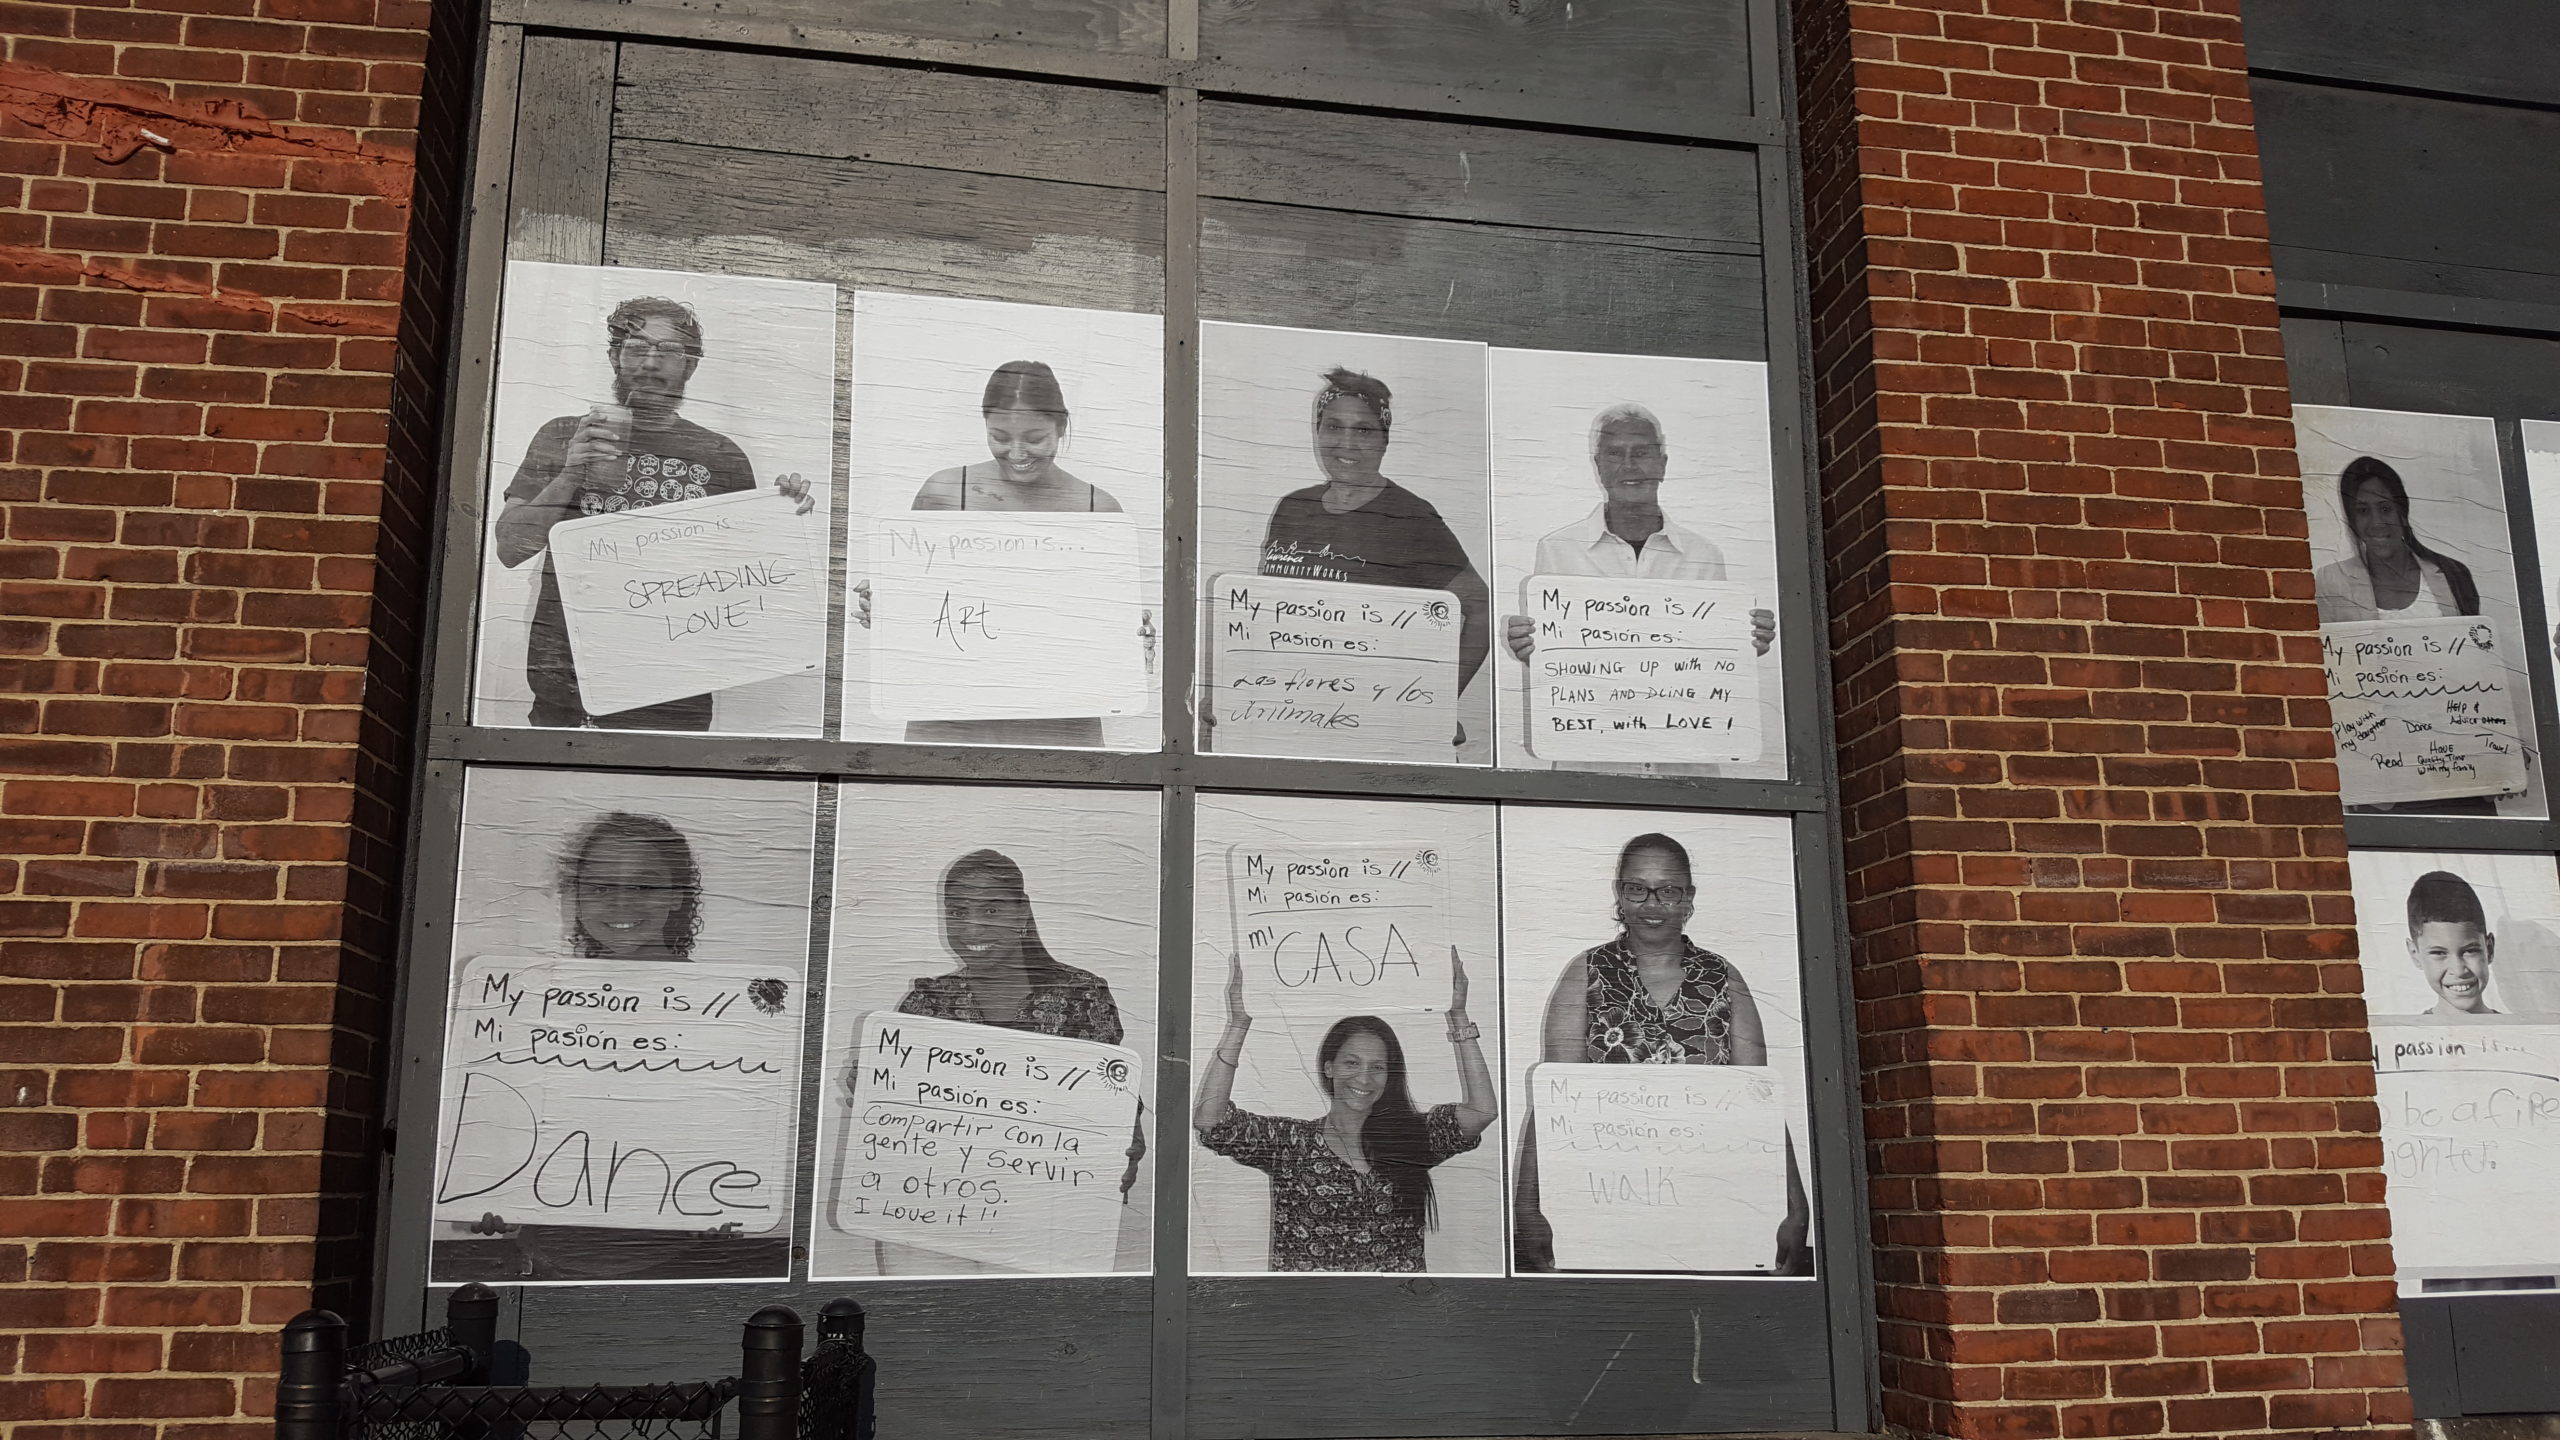 My passion is...
SPREADING
LOVE!
My passion is...
Art
Lawrence
COMMUNITYWORKS
My passion is //
Mi pasión es:
Las flores y los
Animales
My passion is //
Mi pasión es:
SHOWING UP with NO
PLANS AND DOING MY
BEST, with LOVE!
My passion is //
Mi pasión es:
Dance
My passion is //
Mi pasión es:
Compartir con la
gente y servir
a otros.
I Love it!!
My passion is //
Mi pasión es:
mi CASA
My passion is //
Mi pasión es:
Walk
My passion is //
Mi pasión es:
Play with
my daughter
Dance
Help &
Advice others
Travel
Read
Have
Quality Time
with my family
passion is...
be a fire